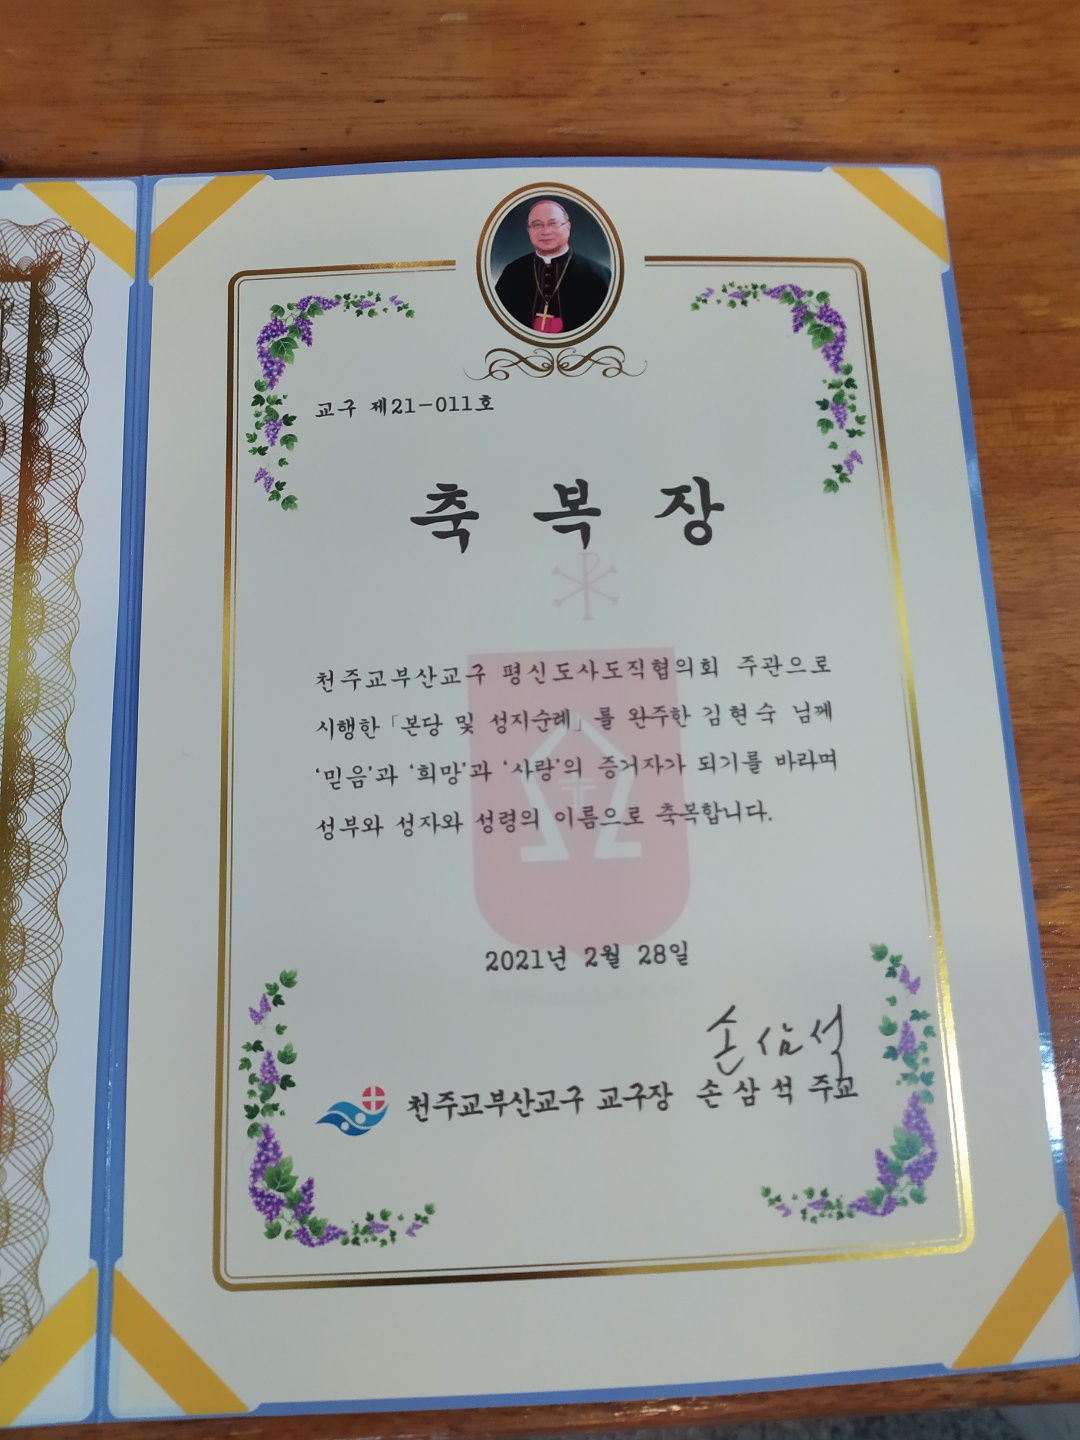 교구 제21-011호
축 복 장
천주교부산교구 평신도사도직협의회 주관으로
시행한 「본당 및 성지순례」를 완주한 김현숙 님께
'믿음'과 '희망'과 '사랑'의 증거자가 되기를 바라며
성부와 성자와 성령의 이름으로 축복합니다.
2021년 2월 28일
손삼석
천주교부산교구 교구장 손 삼 석 주교